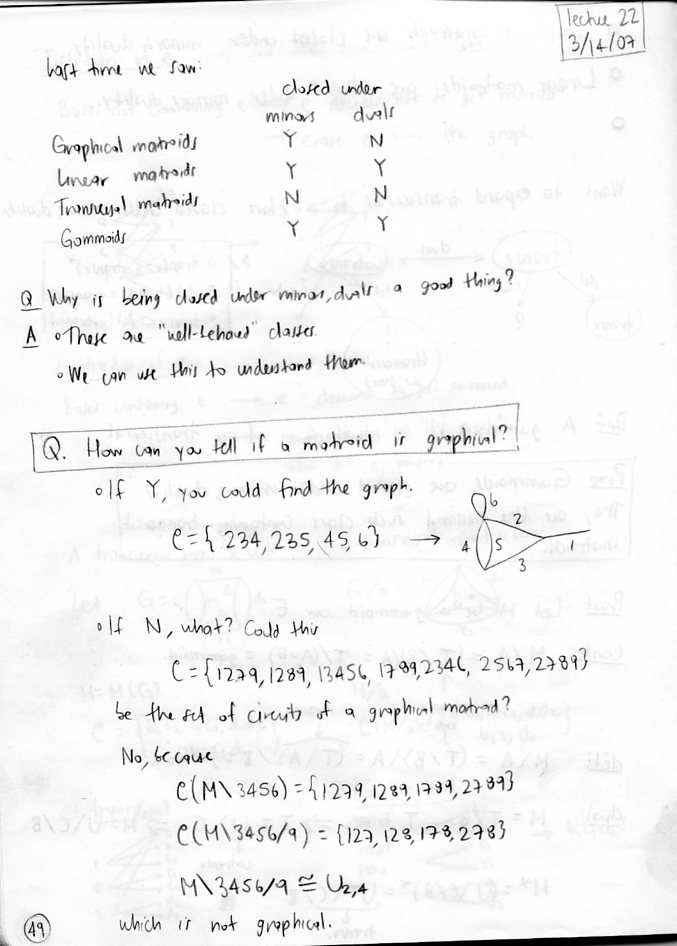 lecture 22
3/14/07
Last time we saw:
closed under
minors duals
Graphical matroids Y N
Linear matroids Y Y
Transversal matroids N N
Gammoids Y Y
Q Why is being closed under minors, duals a good thing?
A • These are "well-behaved" classes.
• We can use this to understand them.
Q. How can you tell if a matroid is graphical?
• If Y, you could find the graph.
C = { 234, 235, 45, 6 } →
6
2
4 5 1
3
• If N, what? Could this
C = {1279, 1289, 13456, 1789, 2346, 2567, 2789}
be the set of circuits of a graphical matroid?
No, because
C(M\3456) = {1279, 1289, 1789, 2789}
C(M\3456/9) = {127, 128, 178, 278}
M\3456/9 ≅ U2,4
which is not graphical.
49